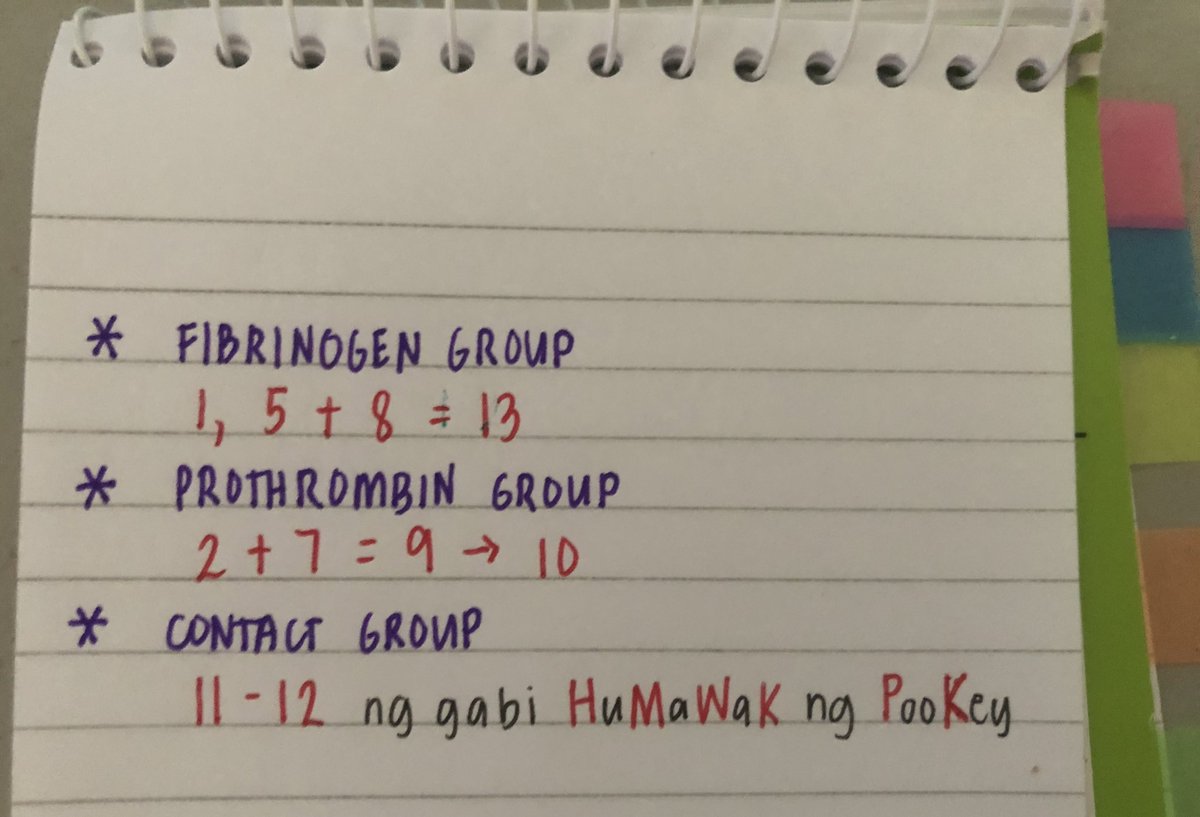 * FIBRINOGEN GROUP
1, 5 + 8 = 13
* PROTHROMBIN GROUP
2 + 7 = 9 → 10
* CONTACT GROUP
11 - 12 ng gabi HuMaWaK ng PooKey